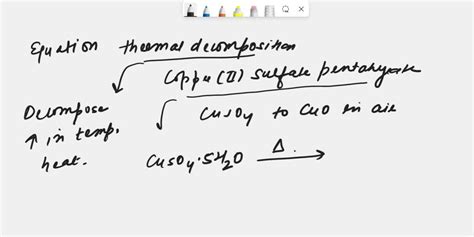 Equation thermal decomposition
Copper (II) sulfate pentahydrate
Decompose
↑ in temp.
heat.
CuSO4 to CuO in air
CuSO4·5H2O Δ. →